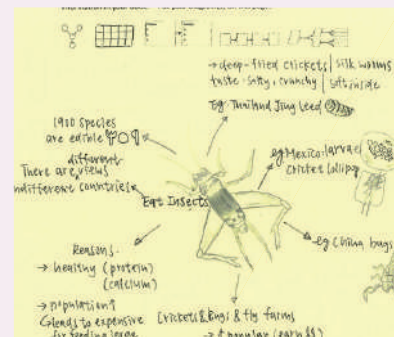 → deep-fried crickets | silk worms
taste: salty, crunchy | soft inside
Eg: Thailand Jing Leed
1900 species
are edible
different
There are views
indifferent countries
Eat Insects
eg Mexico: larvae
cricket lollipop
→ eg China bugs
Reasons.
→ healthy (protein)
(calcium)
→ population↑
leads to expensive
for feeding large
Crickets & Bugs & fly farms
→ ↑ popular (earn $$)